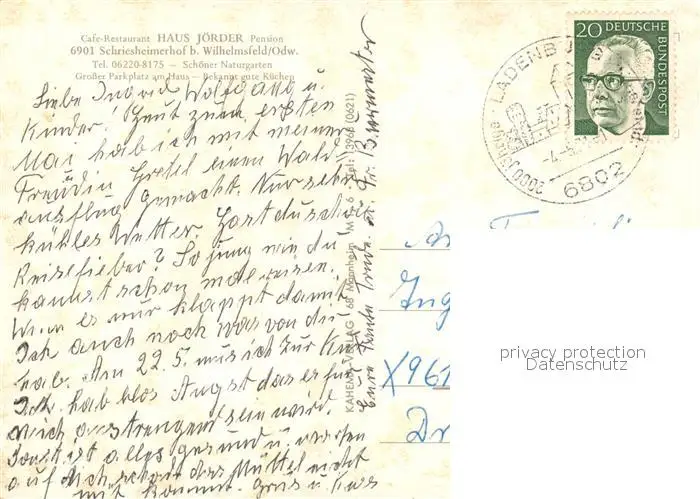 Cafe-Restaurant HAUS JÖRDER Pension
6901 Schriesheimerhof b. Wilhelmsfeld/Odw.
Tel. 06220-8175 — Schöner Naturgarten
Großer Parkplatz am Haus — Bekannt gute Küchen
Liebe Ingrid Wolfgang u.
Kinder! Heut zum ersten
Mai hab ich mit meiner
Freundin Gretel einen Wald
ausflug gemacht. Nur sehr
kühles Wetter. Hast du schon
Reisefieber? So jung wie du
kannst schon mal reisen.
Wenn es nur klappt damit
Ich auch noch was von dir
hab. Am 22.5. mus ich zur Kur
Ich hab blos Angst das es für
mich anstrengend sein wird.
Sonst ist alles gesund u.
auf dich schon das Müttel nicht
mit kommt. Grus u. Kuss
Eure Tante
KAHEMA VERLAG 68 Mannheim
(0621)
20 DEUTSCHE BUNDESPOST
LADENBURG
2000 Jahre
6802
An
Ing
X961
Dr
privacy protection
Datenschutz